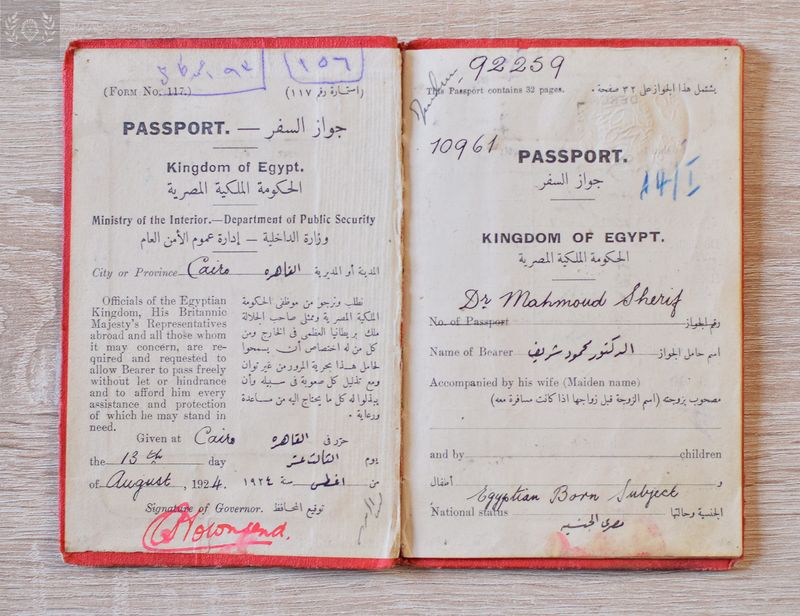 ١٥٦
(FORM NO. 117.) (استمارة رقم ١١٧)
PASSPORT. — جواز السفر
Kingdom of Egypt.
الحكومة الملكية المصرية
Ministry of the Interior.—Department of Public Security
وزارة الداخلية — إدارة عموم الأمن العام
City or Province Cairo القاهره المدينة أو المديرية
Officials of the Egyptian
Kingdom, His Britannic
Majesty's Representatives
abroad and all those whom
it may concern, are re-
quired and requested to
allow Bearer to pass freely
without let or hindrance
and to afford him every
assistance and protection
of which he may stand in
need.
نطلب ونرجو من موظفى الحكومة
الملكية المصرية وممثلى صاحب الجلالة
ملك بريطانيا العظمى فى الخارج ومن
كل من له اختصاص أن يسمحوا
لحامل هذا بحرية المرور من غير توان
ومع تذليل كل صعوبة فى سبيله وأن
يبذلوا له كل ما يحتاج اليه من مساعدة
ورعاية .
Given at Cairo القاهره حرر فى
the 13th day الثالث عشر يوم
of August, 1924. اغسطس سنة ١٩٢٤ من
Signature of Governor. توقيع المحافظ
Townsend.
92259
This Passport contains 32 pages. يشتمل هذا الجواز على ٣٢ صفحة .
10961
PASSPORT.
جواز السفر
14/I
KINGDOM OF EGYPT.
الحكومة الملكية المصرية
Dr Mahmoud Sherif
No. of Passport رقم الجواز
Name of Bearer الدكتور محمود شريف اسم حامل الجواز
Accompanied by his wife (Maiden name)
مصحوب بزوجته (اسم الزوجة قبل زواجها اذا كانت مسافرة معه)
and by children
و أطفال
Egyptian Born Subject
National status مصرى الجنسيه الجنسية وحالتها